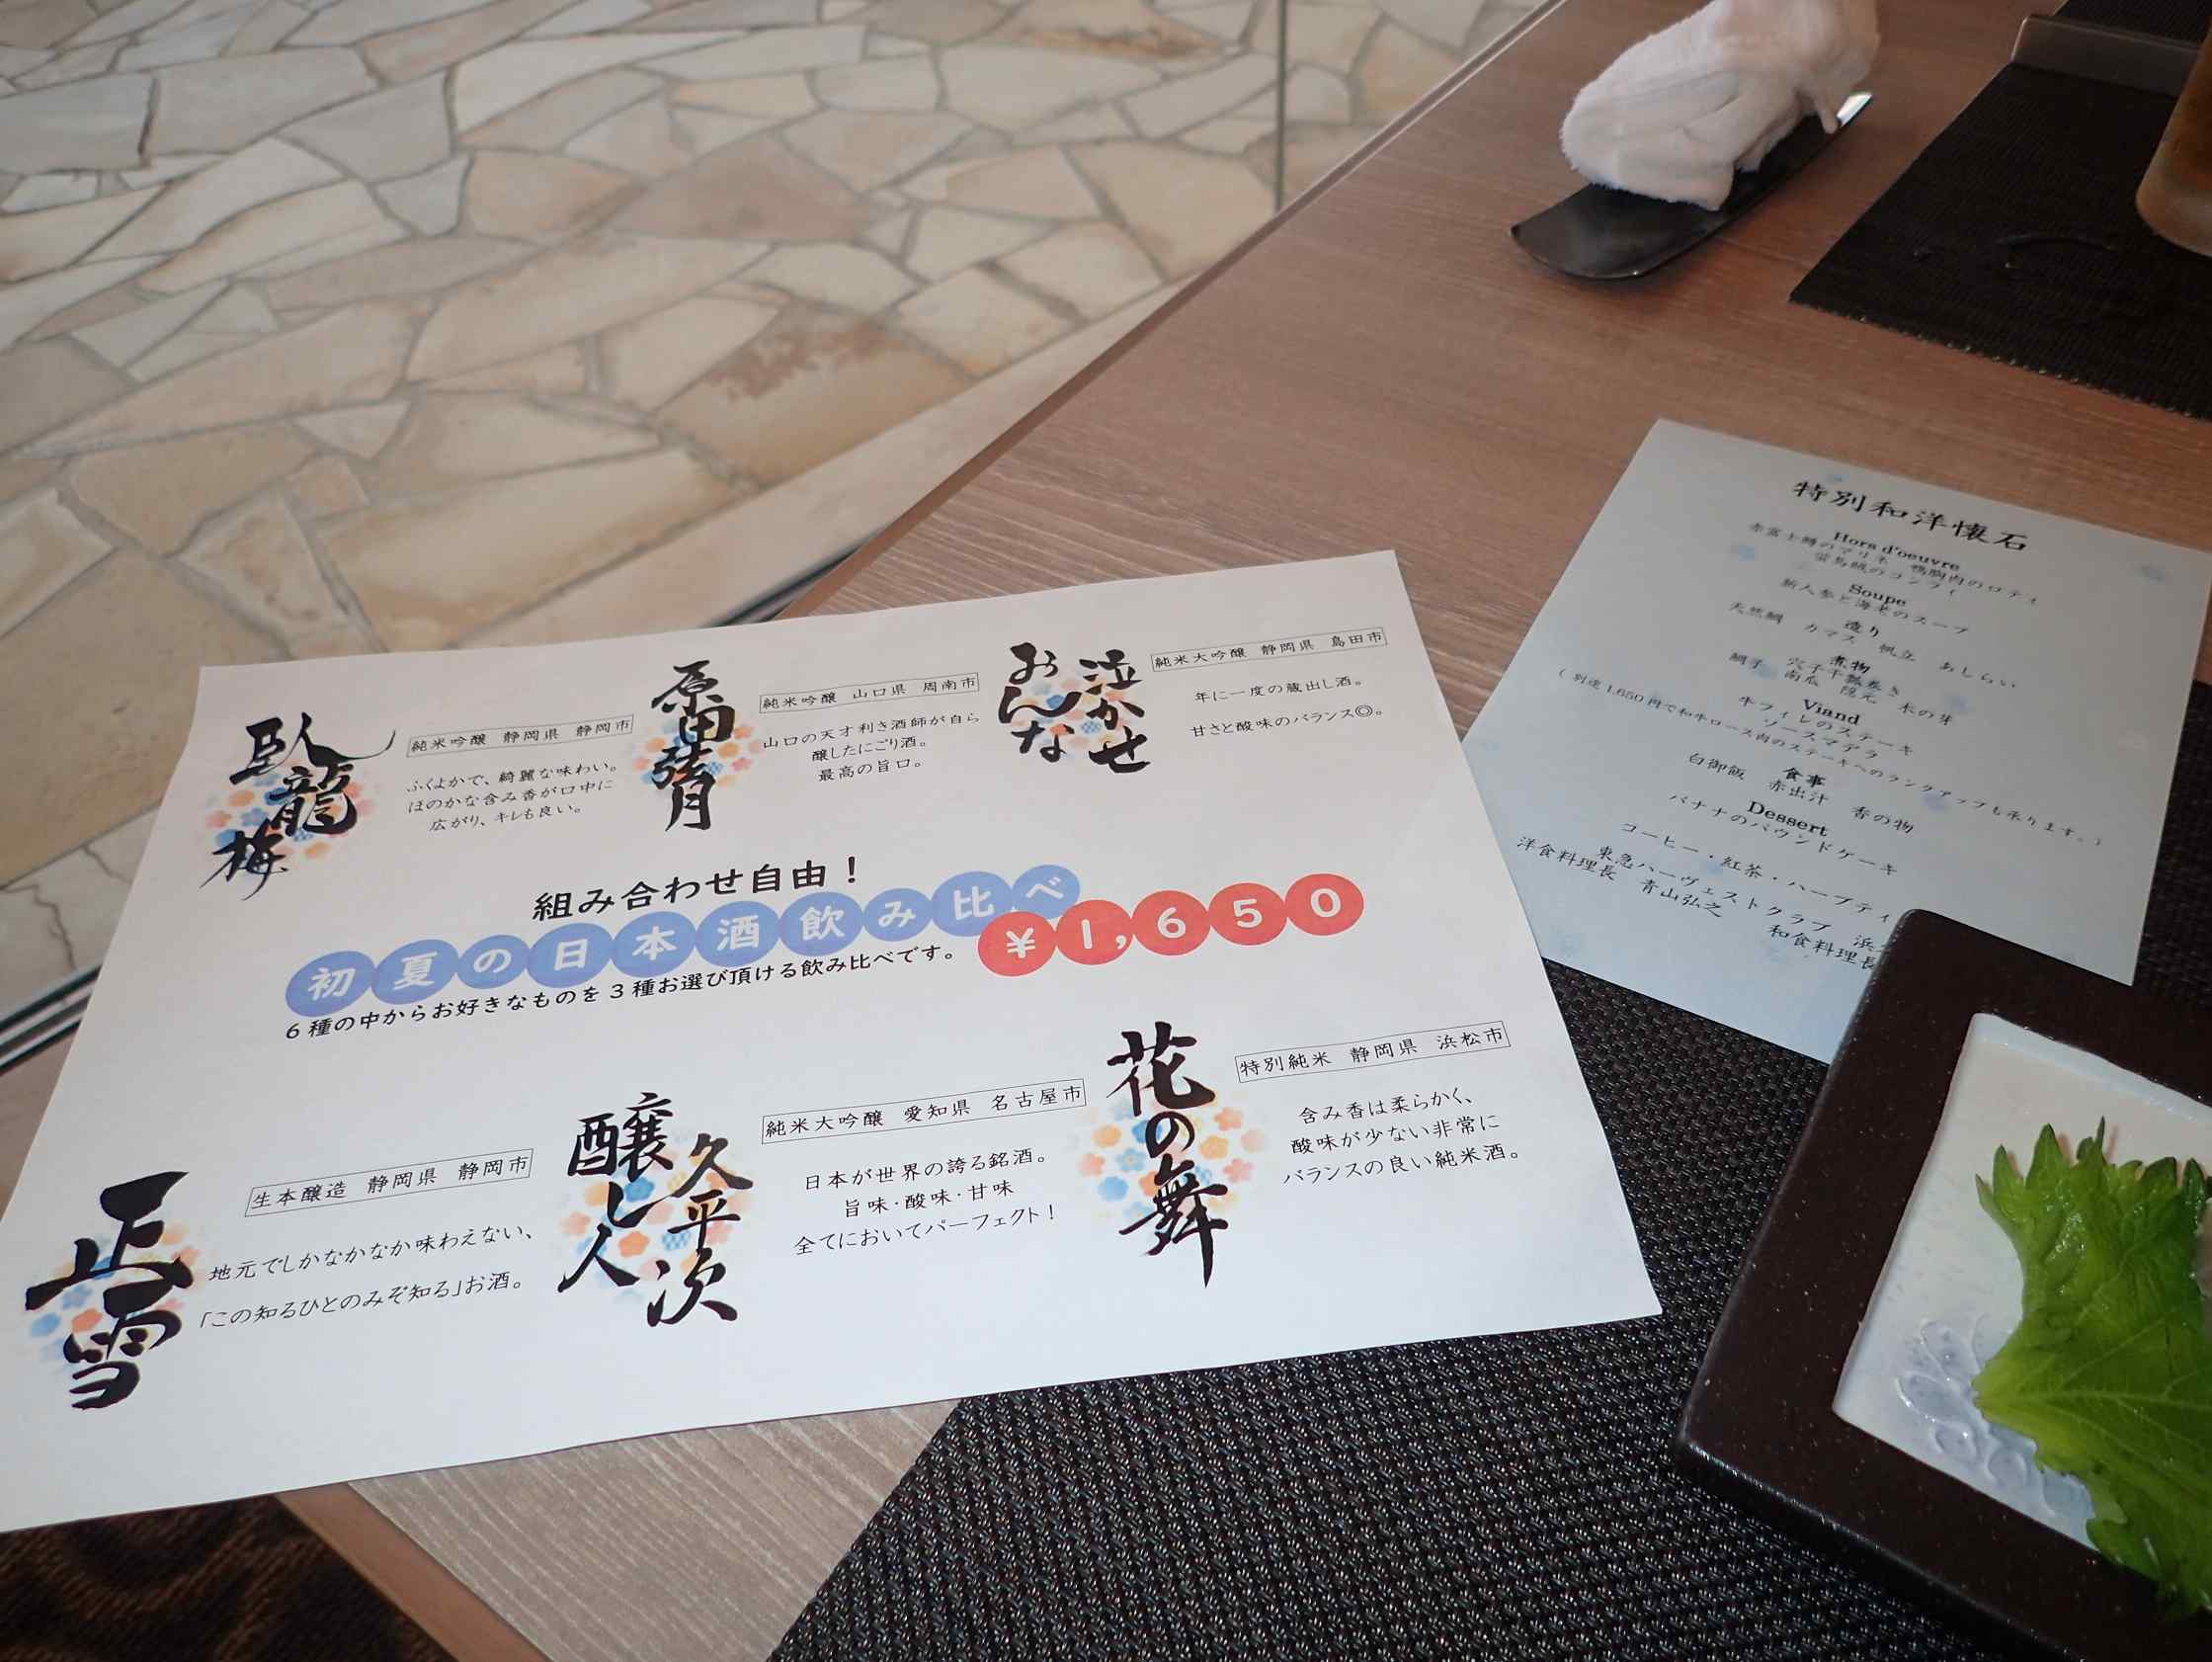 臥龍梅
純米吟醸 静岡県 静岡市
ふくよかで、綺麗な味わい。
ほのかな含み香が口中に
広がり、キレも良い。
原田弦月
純米吟醸 山口県 周南市
山口の天才利き酒師が自ら
醸したにごり酒。
最高の旨口。
泣かせ
おんな
純米大吟醸 静岡県 島田市
年に一度の蔵出し酒。
甘さと酸味のバランス◎。
組み合わせ自由！
初夏の日本酒飲み比べ
¥1,650
6種の中からお好きなものを3種お選び頂ける飲み比べです。
正雪
生本醸造 静岡県 静岡市
地元でしかなかなか味わえない、
「この知るひとのみぞ知る」お酒。
醸し人
久平次
純米大吟醸 愛知県 名古屋市
日本が世界の誇る銘酒。
旨味・酸味・甘味
全てにおいてパーフェクト！
花の舞
特別純米 静岡県 浜松市
含み香は柔らかく、
酸味が少ない非常に
バランスの良い純米酒。
特別和洋懐石
Hors d'oeuvre
赤富士鱒のマリネ 鴨胸肉のロティ
のコンフィ
Soupe
新人参と海老のスープ
造り
天然鯛 カマス 帆立 あしらい
煮物
鯛子 穴子干瓢巻き
南瓜 隠元 木の芽
Viand
牛フィレのステーキ
ソースマデラ
(別途1,650円で和牛ロース肉のステーキへのランクアップも承ります。)
食事
白御飯 赤出汁 香の物
Dessert
バナナのパウンドケーキ
コーヒー・紅茶・ハーブティ
東急ハーヴェストクラブ 浜
洋食料理長 青山弘之
和食料理長